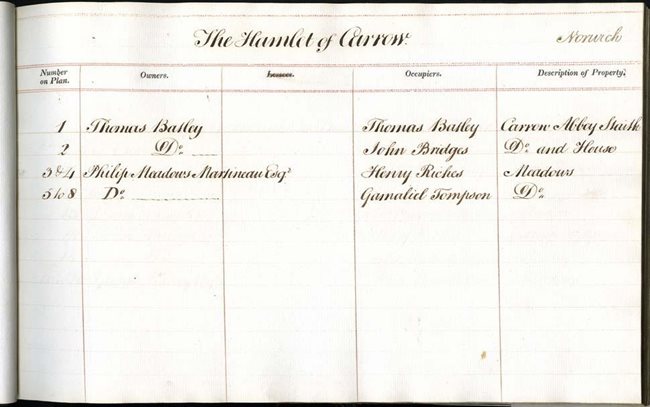 The Hamlet of Carrow. Norwich
Number on Plan. Owners. Lessees. Occupiers. Description of Property.
1 Thomas Batley Thomas Batley Carrow Abbey Staith
2 Do. John Bridges Do. and House
3 & 4 Philip Meadows Martineau Esqr. Henry Riches Meadows
5 to 8 Do. Gamaliel Tompson Do.